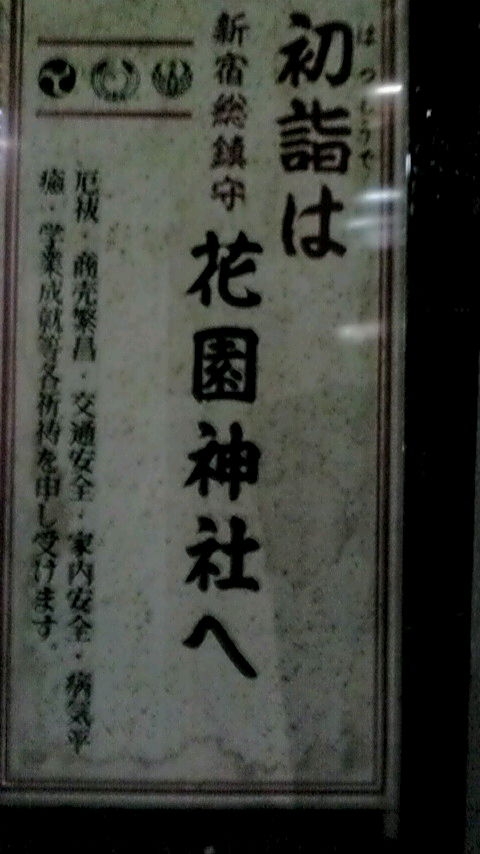 はつもうで
初詣は
新宿総鎮守
花園神社へ
厄祓・商売繁昌・交通安全・家内安全・病気平
癒・学業成就等各祈祷を申し受けます。